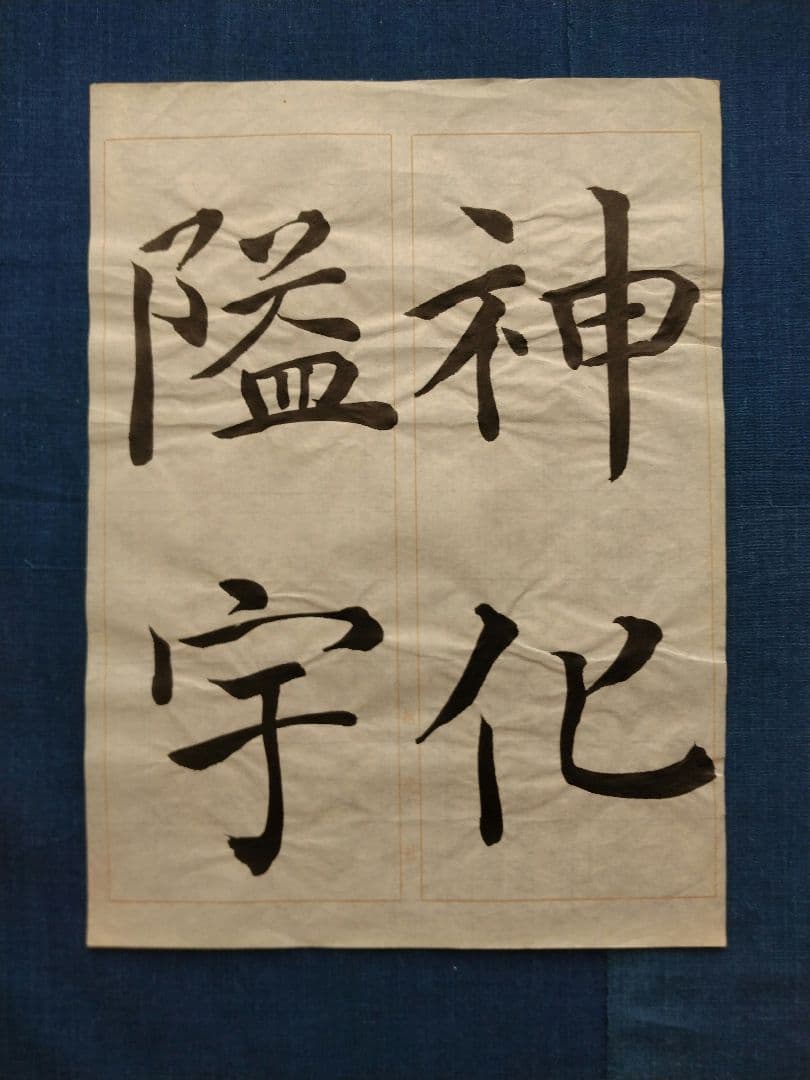 神化
隘宇